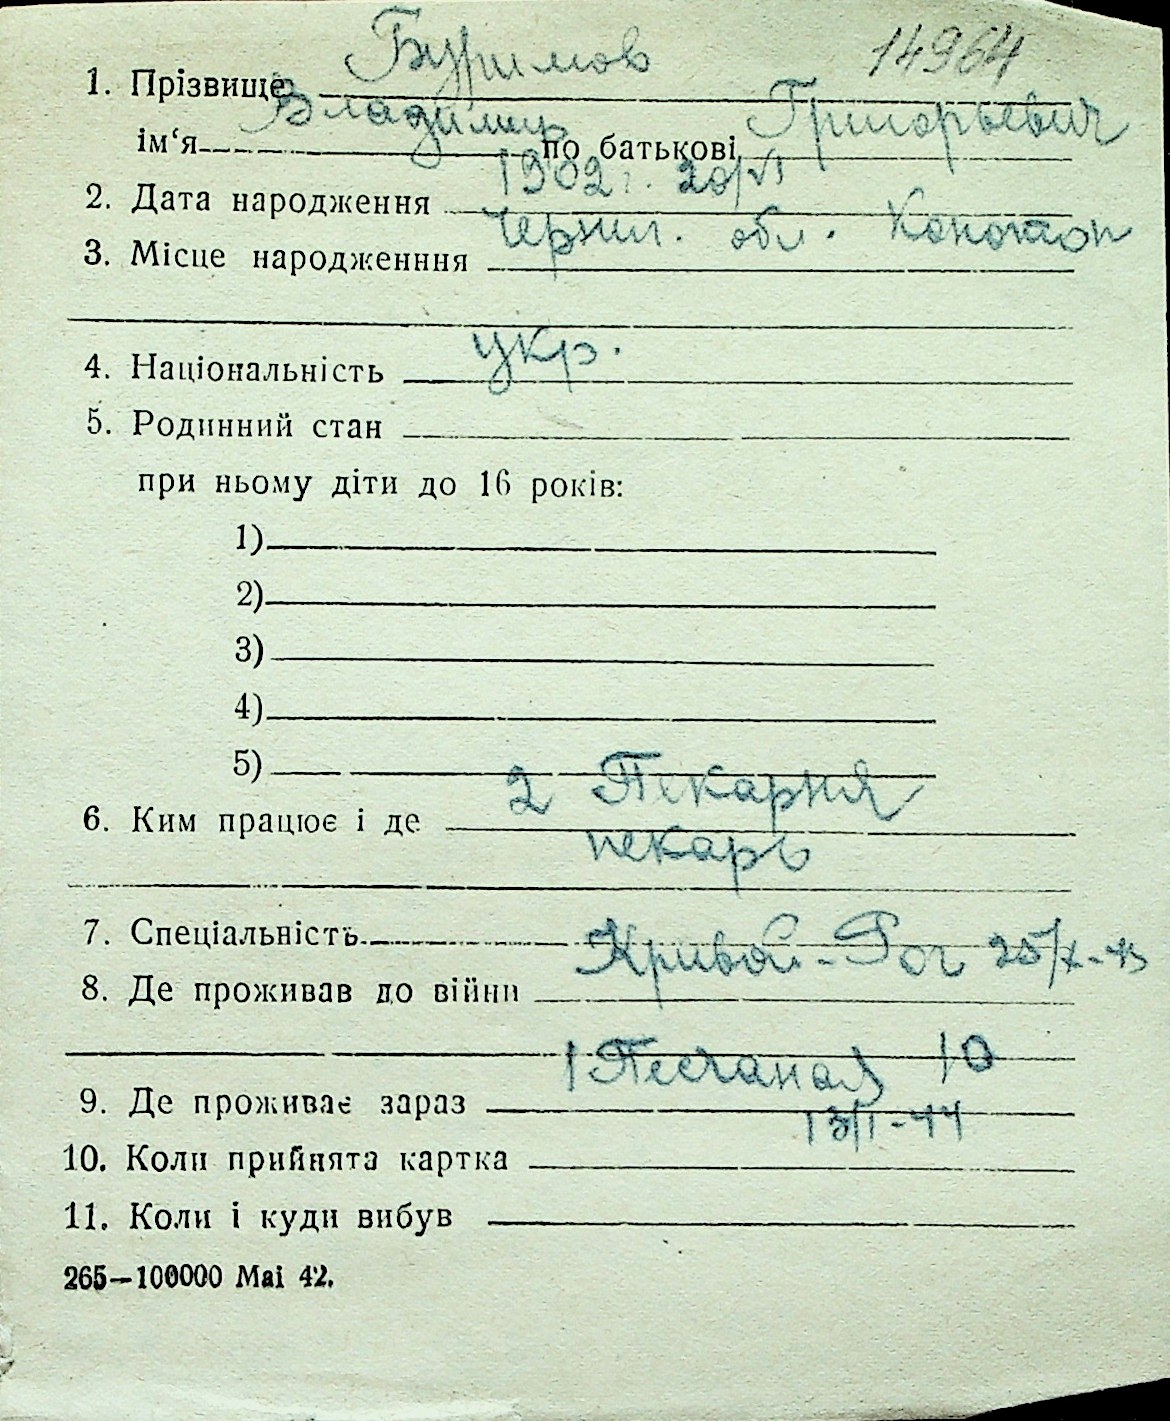 14964
1. Прізвище Буримов
ім‘я Владимир по батькові Григорьевич
2. Дата народження 1902 г. 20/VI
3. Місце народженння Черниг. обл. Конотоп
4. Національність укр.
5. Родинний стан
при ньому діти до 16 років:
1)
2)
3)
4)
5)
6. Ким працює і де 2 Пекарня
пекарь
7. Спеціальність
8. Де проживав до війни Кривой-Рог 25/X-43
9. Де проживає зараз Песчаная 10
10. Коли прийнята картка 13/I-44
11. Коли і куди вибув
265—100000 Mai 42.